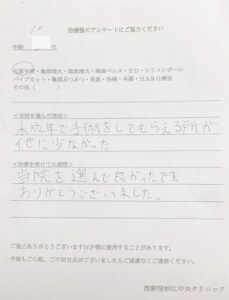 治療後のアンケートにご協力ください
年齢 10 代
包茎手術・亀頭増大・陰茎増大・項垂ペニス・ED・シリコンボール
パイプカット・亀頭ぶつぶつ・長茎・性病・早漏・HARG療法
その他（ ）
＜当院を選んだ理由＞
未成年で手術をしてもらえる所が
他に少なかった
＜治療を受けての感想＞
当院を選んで良かったです
ありがとうございました。
ご協力ありがとうございますHP等に使用することがあります。
今後もご心配、ご不明な点がございましたらご遠慮なくご連絡ください。
西新宿中央クリニック